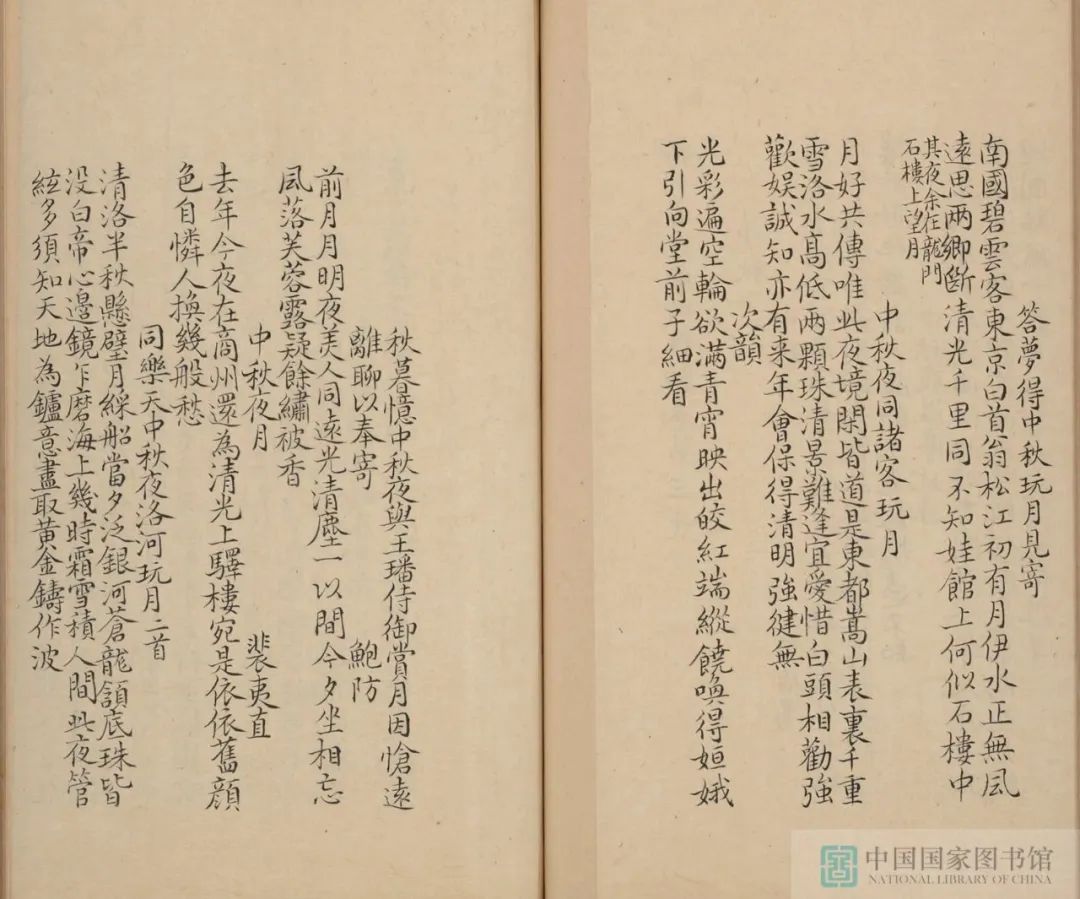 答夢得中秋玩月見寄
南國碧雲客東京白首翁松江初有月伊水正無風
遠思两鄉斷清光千里同不知娃館上何似石樓中
其夜余在龍門
石樓上望月
中秋夜同諸客玩月
月好共傳唯此夜境閑皆道是東都嵩山表裏千重
雪洛水髙低两顆珠清景難逢宜愛惜白頭相勸強
歡娱誠知亦有来年會保得清明強健無
次韻
光彩遍空輪欲满青宵映出皎紅端縱饒喚得姮娥
下引向堂前子細看
秋暮憶中秋夜與王璠侍御賞月因愴遠
離聊以奉寄
鮑防
前月月明夜美人同遠光清塵一以間今夕坐相忘
風落芙蓉露疑餘繡被香
中秋夜月
裴夷直
去年今夜在商州還為清光上驛樓宛是依依舊顔
色自憐人換幾般愁
同樂天中秋夜洛河玩月二首
清洛半秋懸璧月綵船當夕泛銀河蒼龍頷底珠皆
没白帝心邊鏡乍磨海上幾時霜雪積人間此夜管
絃多須知天地為鑪意盡取黄金鑄作波
中国国家图书馆
NATIONAL LIBRARY OF CHINA